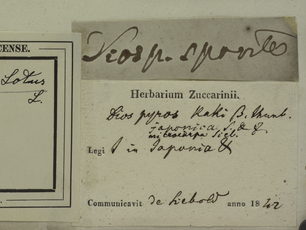 CENSE.
Lotus
L.
Diosp. spontes
Herbarium Zuccarinii.
Diospyros Kaki β. Thunb.
japonica S. & Z.
microcarpa Sieb.
Legi in Japonia
Communicavit de Siebold anno 1842